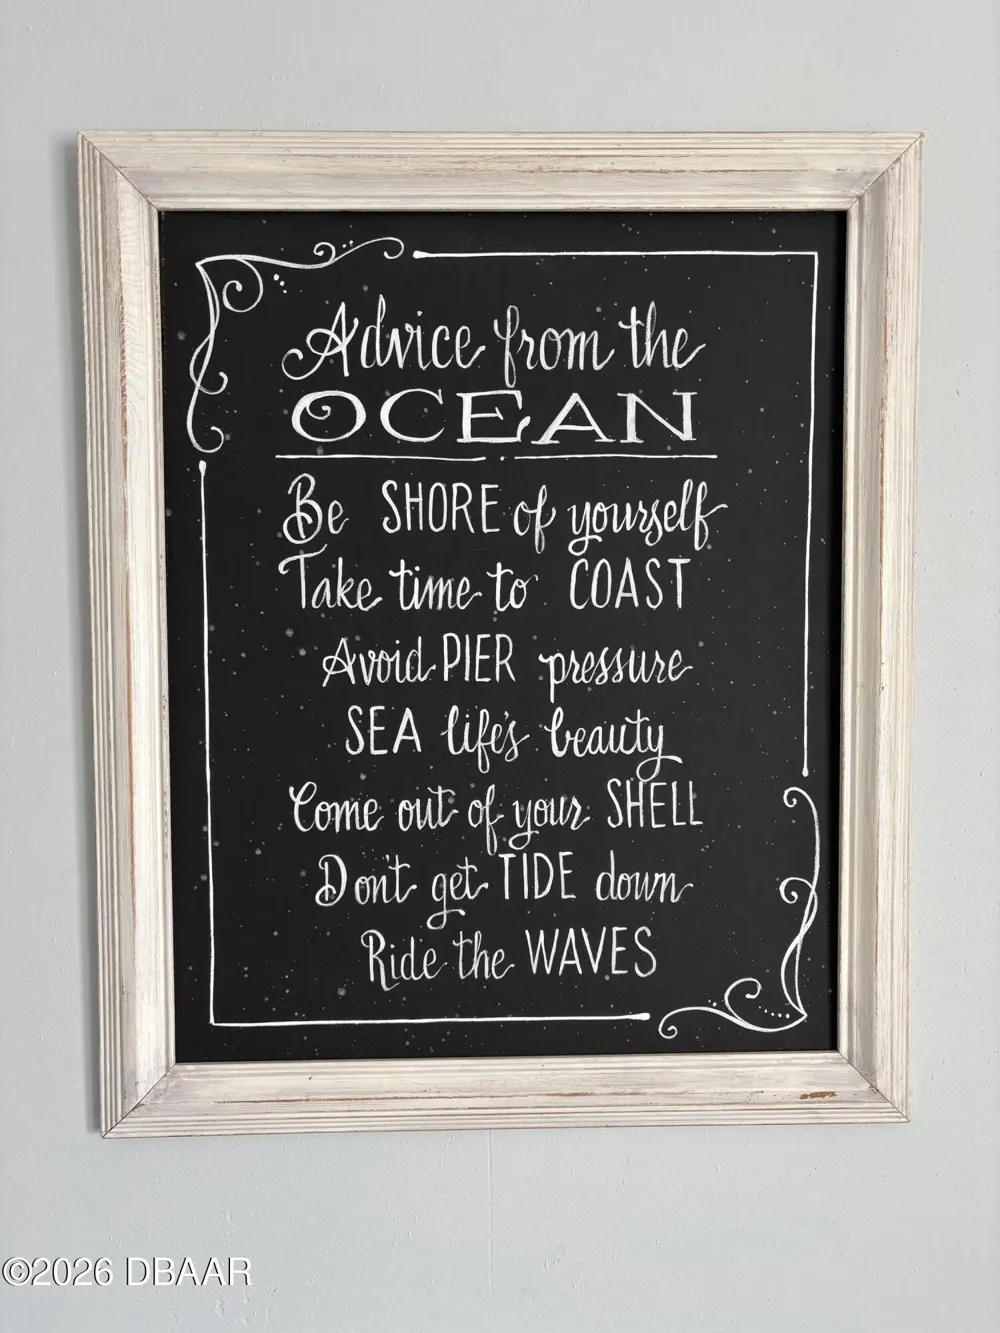 Advice from the
OCEAN
Be SHORE of yourself
Take time to COAST
Avoid PIER pressure
SEA life's beauty
Come out of your SHELL
Don't get TIDE down
Ride the WAVES
©2026 DBAAR